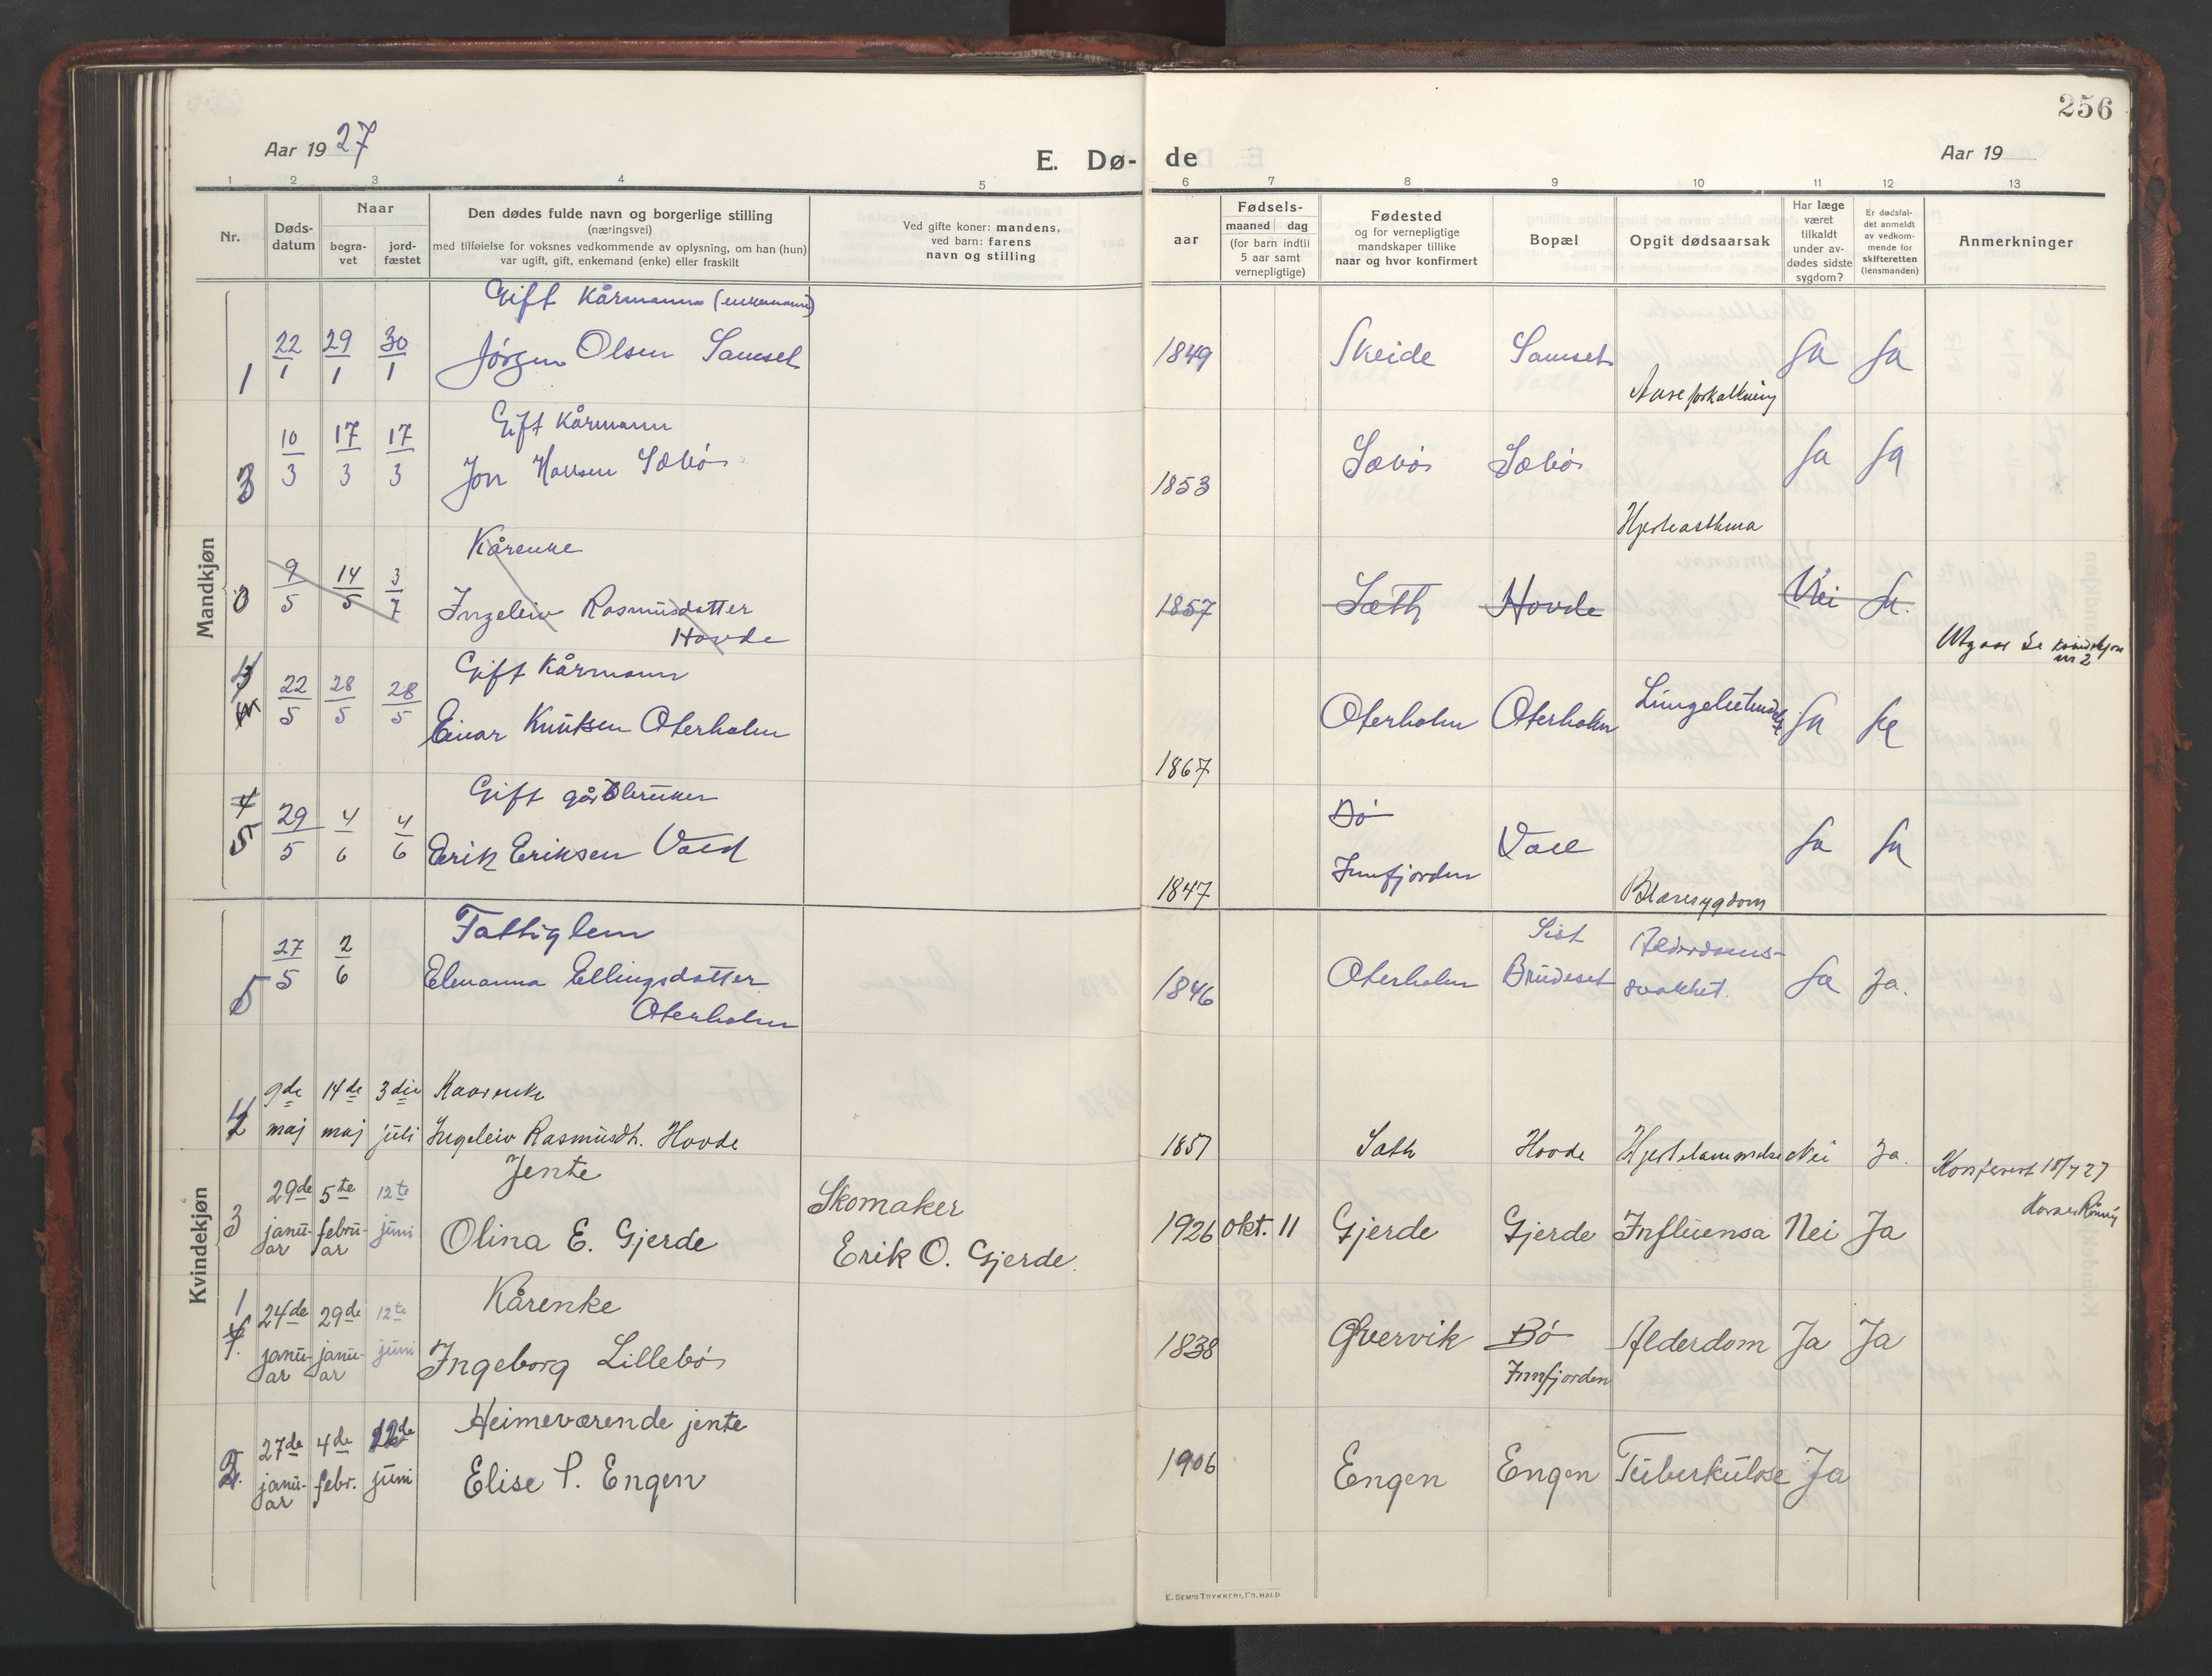 256
Aar 1927
E. Dø-
de
Aar 19
1 2 3 4 5 6 7 8 9 10 11 12 13
Nr.
Døds-
datum
Naar
begra-
vet
jord-
fæstet
Den dødes fulde navn og borgerlige stilling
(næringsvei)
med tilføielse for voksnes vedkommende av oplysning, om han (hun)
var ugift, gift, enkemand (enke) eller fraskilt
Ved gifte koner: mandens,
ved barn: farens
navn og stilling
aar
Fødsels-
maaned dag
(for barn indtil
5 aar samt
vernepligtige)
Fødested
og for vernepligtige
mandskaper tillike
naar og hvor konfirmert
Bopæl
Opgit dødsaarsak
Har læge
været
tilkaldt
under av-
dødes sidste
sygdom?
Er dødsfal-
det anmeldt
av vedkom-
mende for
skifteretten
(lensmanden)
Anmerkninger
Mandkjøn
Gift Kårmann (enkemann)
1 22/1 29/1 30/1 Jörgen Olsen Samset 1849 Skeide Samset Ja Ja
Aareforkalkning
Gift Kårmann
3 10/3 17/3 17/3 Jon Hansen Sæbö 1853 Sæbö Sæbö Ja Ja
Hjerteasthma
Kårenke
9/5 14/5 3/7 Ingeleiv Rasmusdatter
Hovde
1857 Sæth Hovde Nei Ja.
Utgaar Se kvindekjøn
nr 2
Gift Kårmann
22/5 28/5 28/5 Einar Knutsen Oterholm 1867 Oterholm Oterholm Ja Ja
Gift gårdbruker
5 29/5 4/6 4/6 Erik Eriksen Vold 1847 Bö
Innfjorden
Voll Blæresygdom Ja Ja
Kvindekjøn
Fattiglem
5 27/5 2/6 Elenanna Ellingsdatter
Oterholm
1846 Oterholm Sist
Brüdeset
Alderdoms-
svakhet. Ja Ja.
9de maj 14de maj 3die juli Kaarenke
Ingeleiv Rasmusdt. Hovde 1857 Sæth Hovde Hjertelammelse Nei Ja.
Konferert 18/7 27
Jente
3 29de janu-ar 5te febru-ar 12te juni Olina E. Gjerde
Skomaker
Erik O. Gjerde.
1926 okt. 11 Gjerde Gjerde Influensa Nei Ja
Kårenke
1 24de janu-ar 29de janu-ar 12te juni Ingeborg Lillebö 1838 Qvervik Bö
Innfjorden
Alderdom Ja Ja
Heimeværende jente
2. 27de janu-ar 4de febr. 12de juni Elise P. Engen 1906 Engen Engen Tuberkulose Ja
E. SEM'S TRYKKERI, FR.HALD